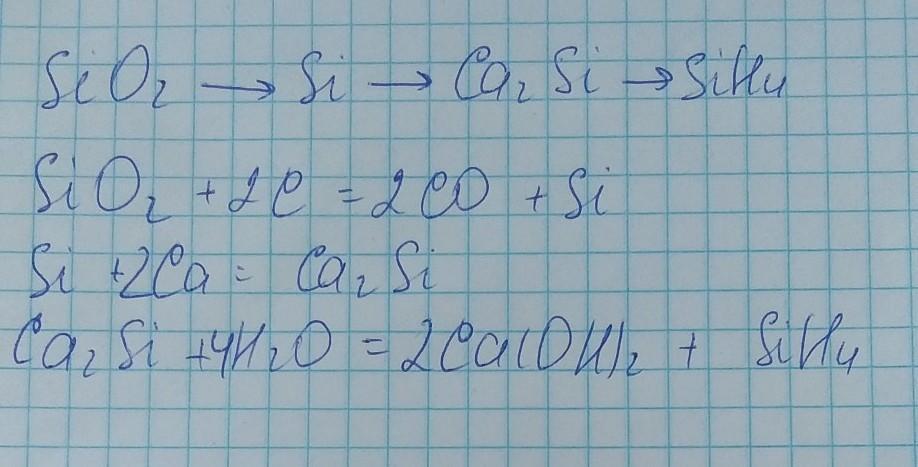 SiO₂ → Si → Ca₂Si → SiH₄
SiO₂ + 2C = 2CO + Si
Si + 2Ca = Ca₂Si
Ca₂Si + 4H₂O = 2Ca(OH)₂ + SiH₄